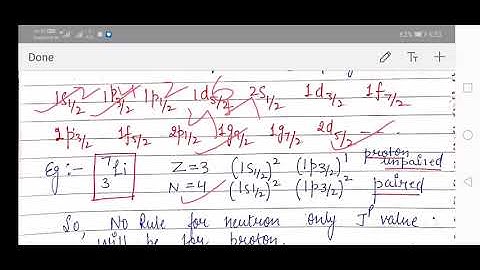 Done
1s1/2 1p3/2 1p1/2 1d5/2 2s1/2 1d3/2 1f7/2
2p3/2 1f5/2 2p1/2 1g9/2 1g7/2 2d5/2
Eg:- 7 3 Li Z=3 (1s1/2)² (1p3/2)¹ proton unpaired
N=4 (1s1/2)² (1p3/2)² paired
So, No Rule for neutron only J^P value
will be for proton.